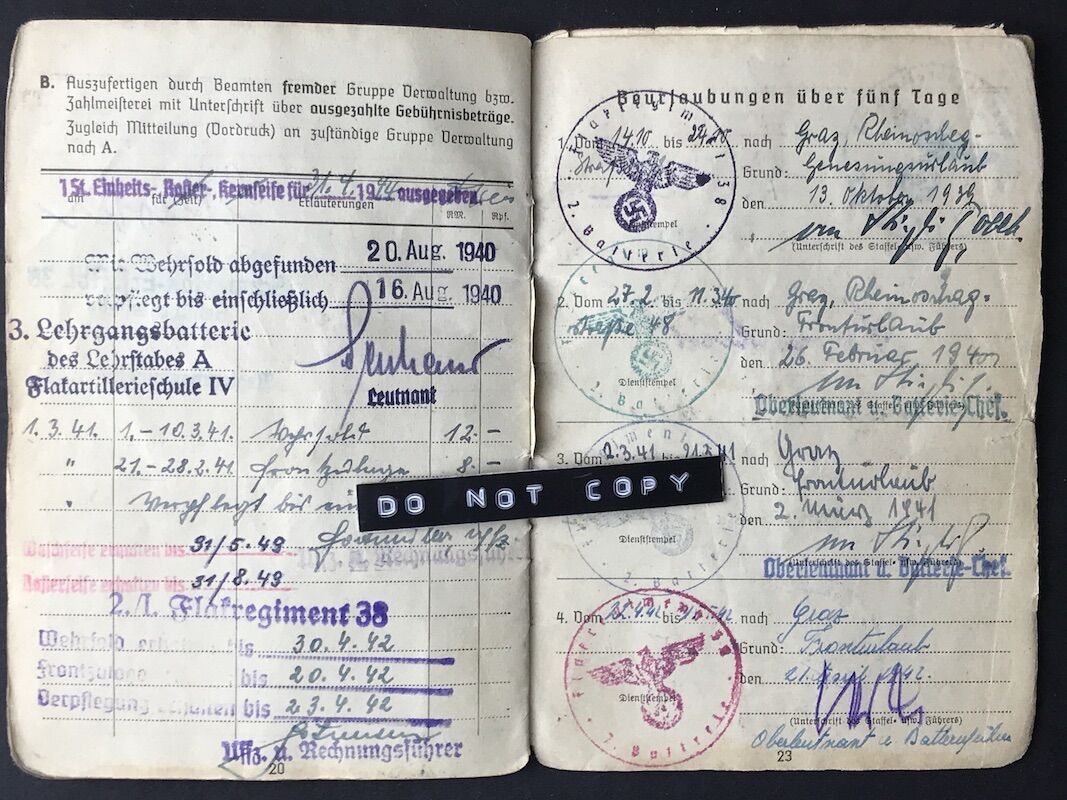 B. Auszufertigen durch Beamten fremder Gruppe Verwaltung bzw.
Zahlmeisterei mit Unterschrift über ausgezahlte Gebührnisbeträge.
Zugleich Mitteilung (Vordruck) an zuständige Gruppe Verwaltung
nach A.
1 St. Einheits-, Rasier-, Kernseife für 31.4.1942 ausgegeben
am für (Zeit) Erläuterungen RM. Rpf.
Mit Wehrsold abgefunden 20. Aug. 1940
verpflegt bis einschließlich 16. Aug. 1940
3. Lehrgangsbatterie
des Lehrstabes A
Flakartillerieschule IV
Leutnant
1.3.41. 1.-10.3.41. Wehrsold 12.-
" 21.-28.2.41. Frontzulage 8.-
" Verpflegt bis
Waschseife erhalten bis 31/5.43
Rasierseife erhalten bis 31/8.43
Uffz. u. Rechnungsführer
2./I. Flakregiment 38
Wehrsold erhalten bis 30.4.42
Frontzulage bis 20.4.42
Verpflegung erhalten bis 23.4.42
Uffz. u. Rechnungsführer
20
DO NOT COPY
Beurlaubungen über fünf Tage
1. Vom 14.10. bis 24.10. nach Graz,
Grund: Genesungsurlaub
den 13. Oktober 1939
(Unterschrift des Staffel- usw. Führers)
Dienststempel
2. Batterie
38
2. Vom 27.2. bis 11.3.40 nach Graz,
straße 48 Grund: Fronturlaub
den 26. Februar 1940
Dienststempel
Oberleutnant u. Batterie-Chef.
2. Batterie
3. Vom 2.3.41 bis 21.3.41 nach Graz
Grund: Fronturlaub
den 2. März 1941
Dienststempel
(Unterschrift des Staffel- usw. Führers)
Oberleutnant u. Batterie-Chef.
2. Batterie
4. Vom 22.4.42 bis nach Graz
Grund: Fronturlaub
den 21. April 1942.
Dienststempel
(Unterschrift des Staffel- usw. Führers)
Oberleutnant u. Batterieführer
2. Batterie
38
23